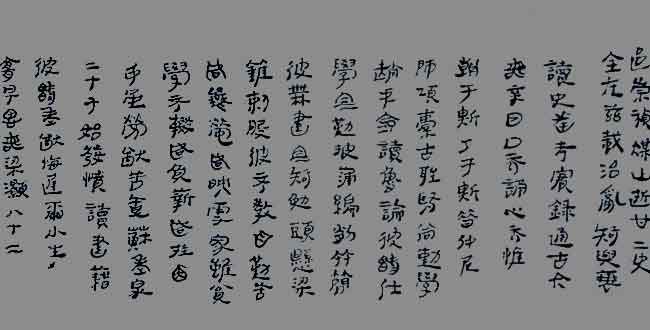 至崇禎煤山逝廿二史
全在茲載治亂知興衰
讀史者考實錄通古今
若親目口而誦心而惟
朝于斯夕于斯昔仲尼
師項橐古聖賢尚勤學
趙中令讀魯論彼既仕
學且勤披蒲編削竹簡
彼無書且知勉頭懸梁
錐刺股彼不教自勤苦
如囊螢如映雪家雖貧
學不輟如負薪如挂角
身雖勞猶苦卓蘇老泉
二十七始發憤讀書籍
彼既老猶悔遲爾小生
宜早思若梁灝八十二